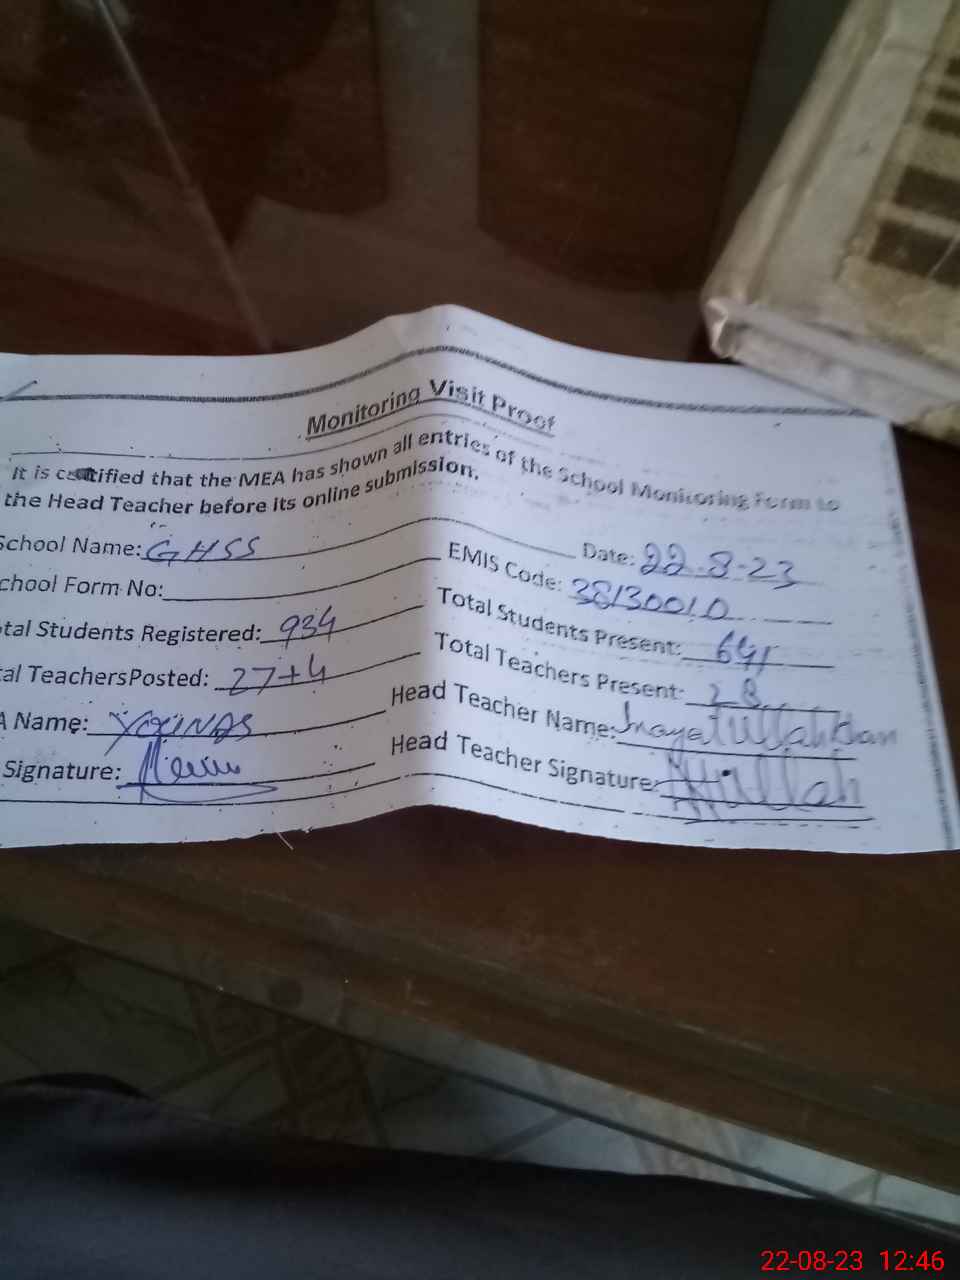 Monitoring Visit Proof
It is certified that the MEA has shown all entries of the School Monitoring Form to
the Head Teacher before its online submission.
School Name: GHSS Date: 22-8-23
chool Form No: EMIS Code: 38130010
tal Students Registered: 934 Total Students Present: 641
al TeachersPosted: 27+4 Total Teachers Present: 28
A Name: YOUNAS Head Teacher Name: Inayatullah Khan
Signature: Head Teacher Signature:
22-08-23 12:46